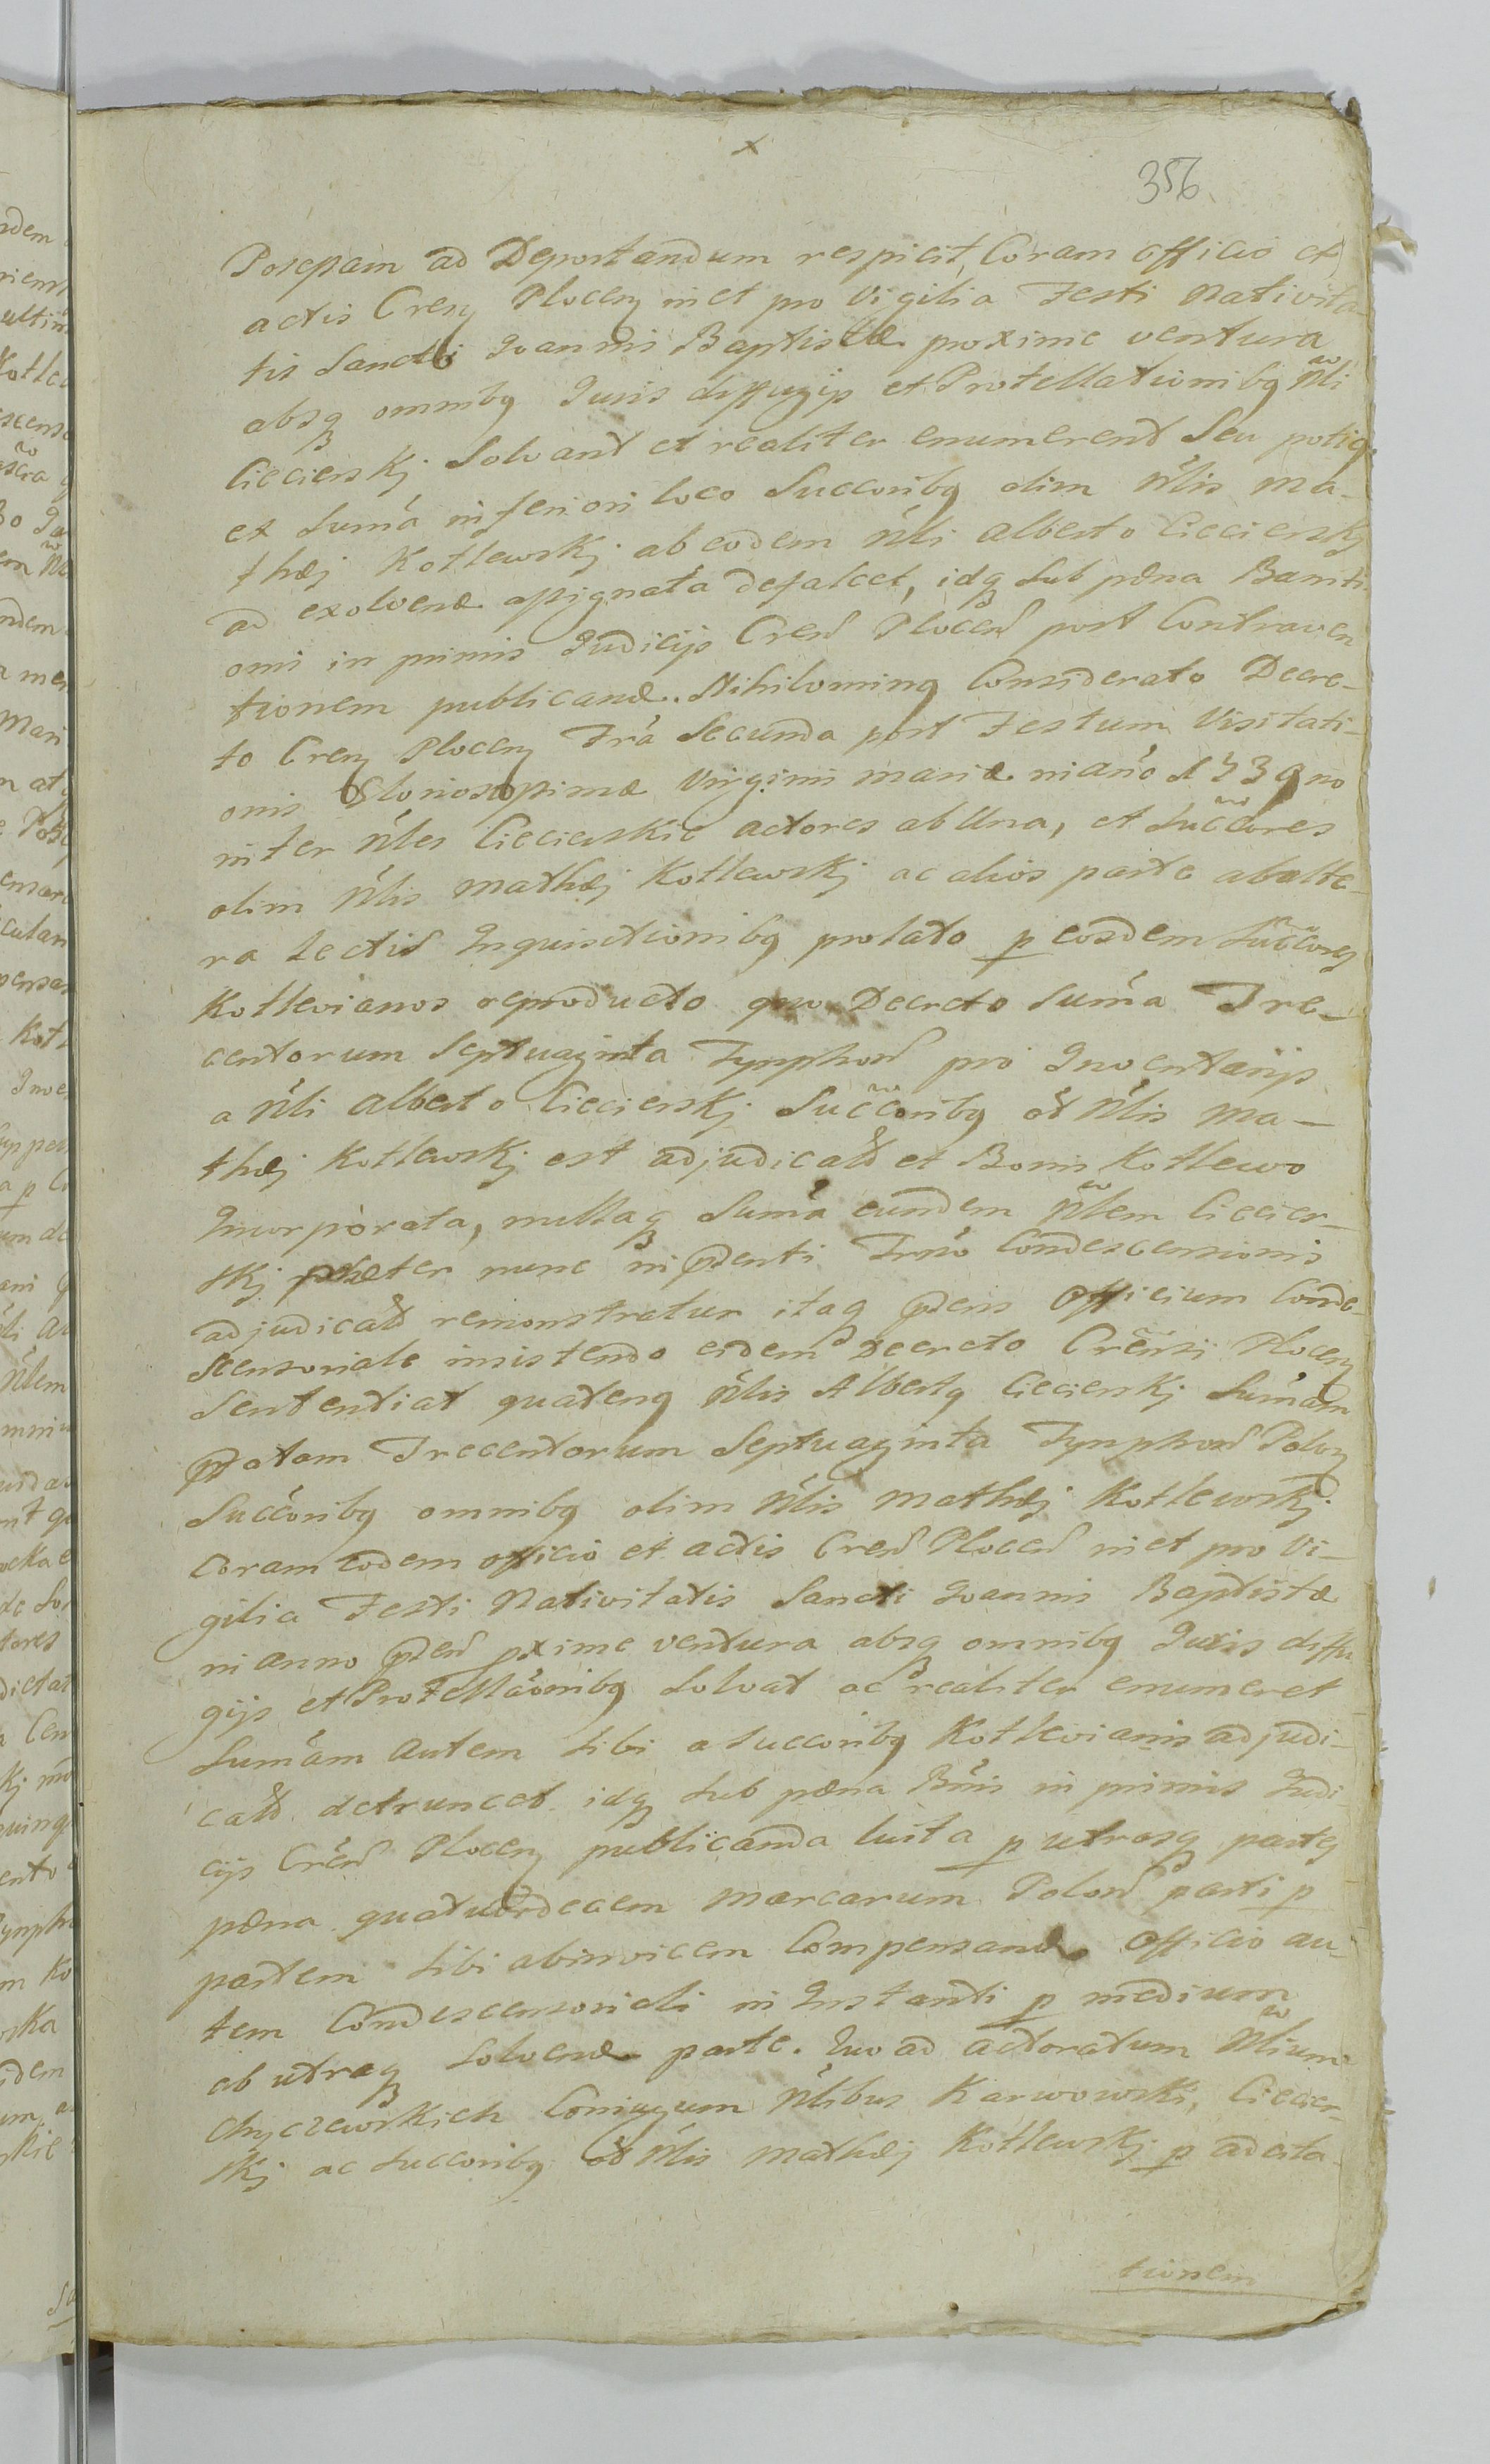 x
356
Posepam ad Deportandum respicit, Coram officio et
actis Cresy Plocesy in et pro Vigilia Festi Nativita-
tis Sancti Joannis Baptistæ proxime ventura
absq omnibq Juris diffugijs et Protestationibq Nli
Ciecierskj Solvant et realiter enumerent Seu potiq
et Suma inferiori loco Succoribq olim Nlis Ma-
thæj Kotlewskj ab eodem Nli Alberto Ciecierskj
ad exolvend assignata defalcet, idq Sub pæna Banniti-
onis in primis Judicijs Cren Plocen post Contraven
tionem publicand. Nihilominq Considerato Decre-
to Creny Ploceny Fra Secunda post Festum Visitati-
onis Gloriosissimæ Virginis Mariæ in ano 1739no
inter Nles Ciecierskie actores ab Una, et Succores
olim Nlis Mathæj Kotlewskj ac alios parte ab alte-
ra Lectis Inquisitionibq prolato p eosdem Succores
Kotlevianos reproducto quo Decreto Suma Tre-
centorum Septuaginta Tynphon pro Inventarijs
a Nli Alberto Ciecierskj Succoribq od Nlis Ma-
thæj Kotlewskj est adjudicata et Bonis Kotlewo
Incorporata, nullaq Suma eundem Nlem Ciecier-
skj præter nunc in pnti Trno Condescensionis
adjudicata remonstratur itaq pns Officium Conde-
scensoriale insistendo eidem Decreto Crensi Ploceny
Sententiat quatenq Nlis Albertq Ciecierskj Sumam
pdatam Trecentorum Septuaginta Tynphon Polon
Succoribq omnibq olim Nlis Mathæj Kotlewskj
Coram eodem officio et actis Cren Plocen in et pro Vi-
gilia Festi Nativitatis Sancti Joannis Baptistæ
in anno pnti pxime ventura absq omnibq Juris diffu
gijs et Protestaonibq Solvat ac realiter enumeret
Sumam autem Sibi a Succoribq Kotlevianis adjudi-
cata detruncet idq Sub pæna Bnis in primis Judi
cijs Cren Ploceny publicanda luita p utrasq partes
pæna quatuordecem marcarum Polon parti p
partem Sibi ab invicem Compensand Officio au-
tem Condescensoriali in Instanti p medium
ab utraq Solvend parte. Quo ad actoratum Nlium
Chyczewskich Coniugum Nlibus Karwowski, Ciecier-
skj ac Succoribq od Nlis Mathæj Kotlewskj p adcita-
tionem